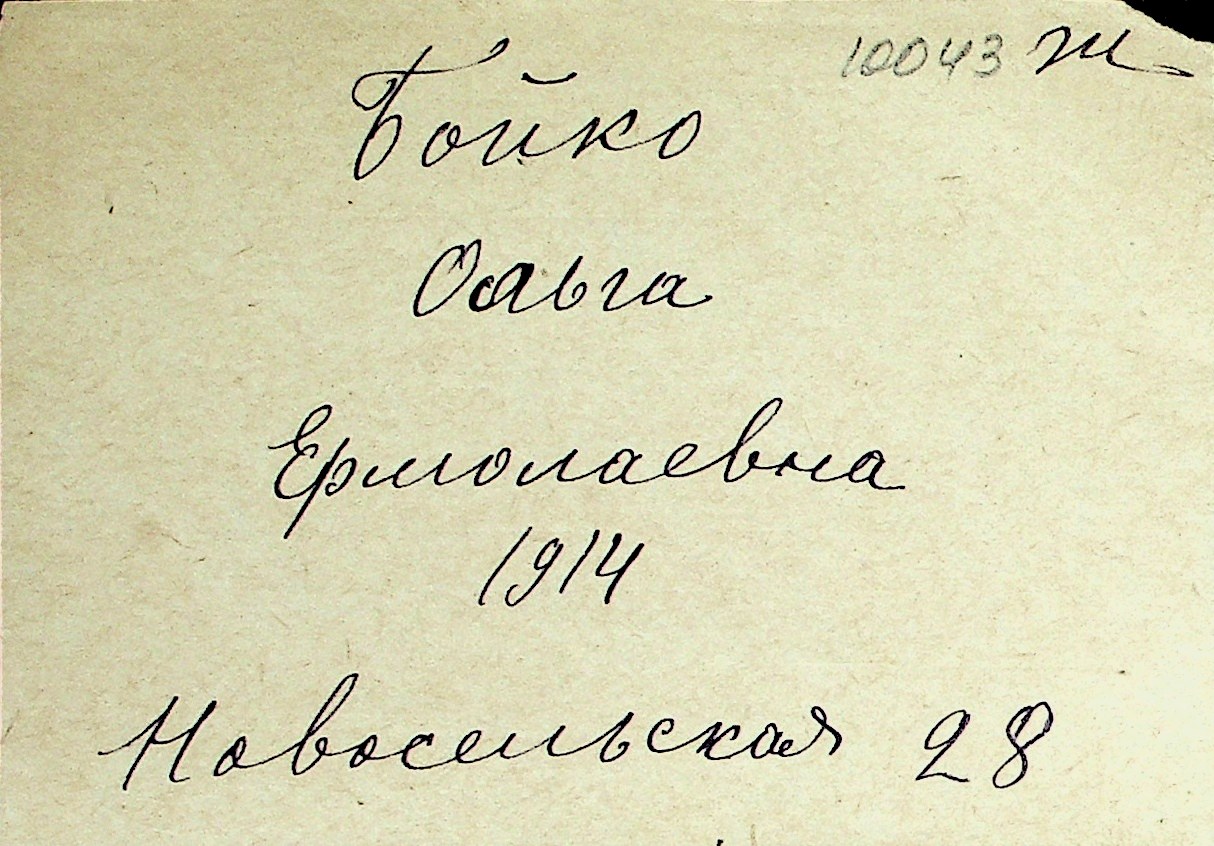 10043 т
Бойко
Ольга
Ермолаевна
1914
Новосельская 28